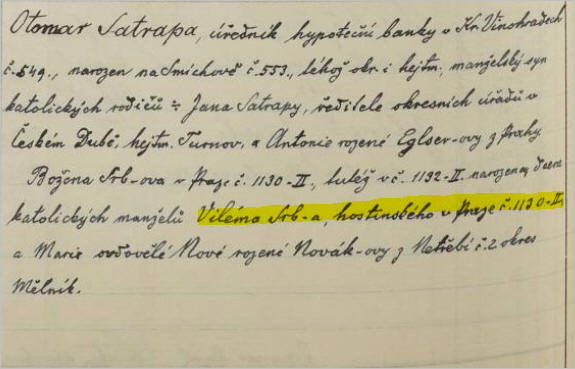 Otomar Satrapa, úředník hypoteční banky v Kr. Vinohradech
č. 549., narozen na Smíchově č. 553., téhož okr. i hejtm., manželský syn
katolických rodičů = Jana Satrapy, ředitele okresních úřadů v
Českém Dubě, hejtm. Turnov, a Antonie rozené Eglser-ovy z Prahy
Božena Srb-ova v Praze č. 1130-II., tutéž v č. 1132-II. narozená dcera
katolických manželů Viléma Srb-a, hostinského v Praze č. 1130-II,
a Marie ovdovělé Nové rozené Novák-ovy z Netřebí č. 2 okres
Mělník.